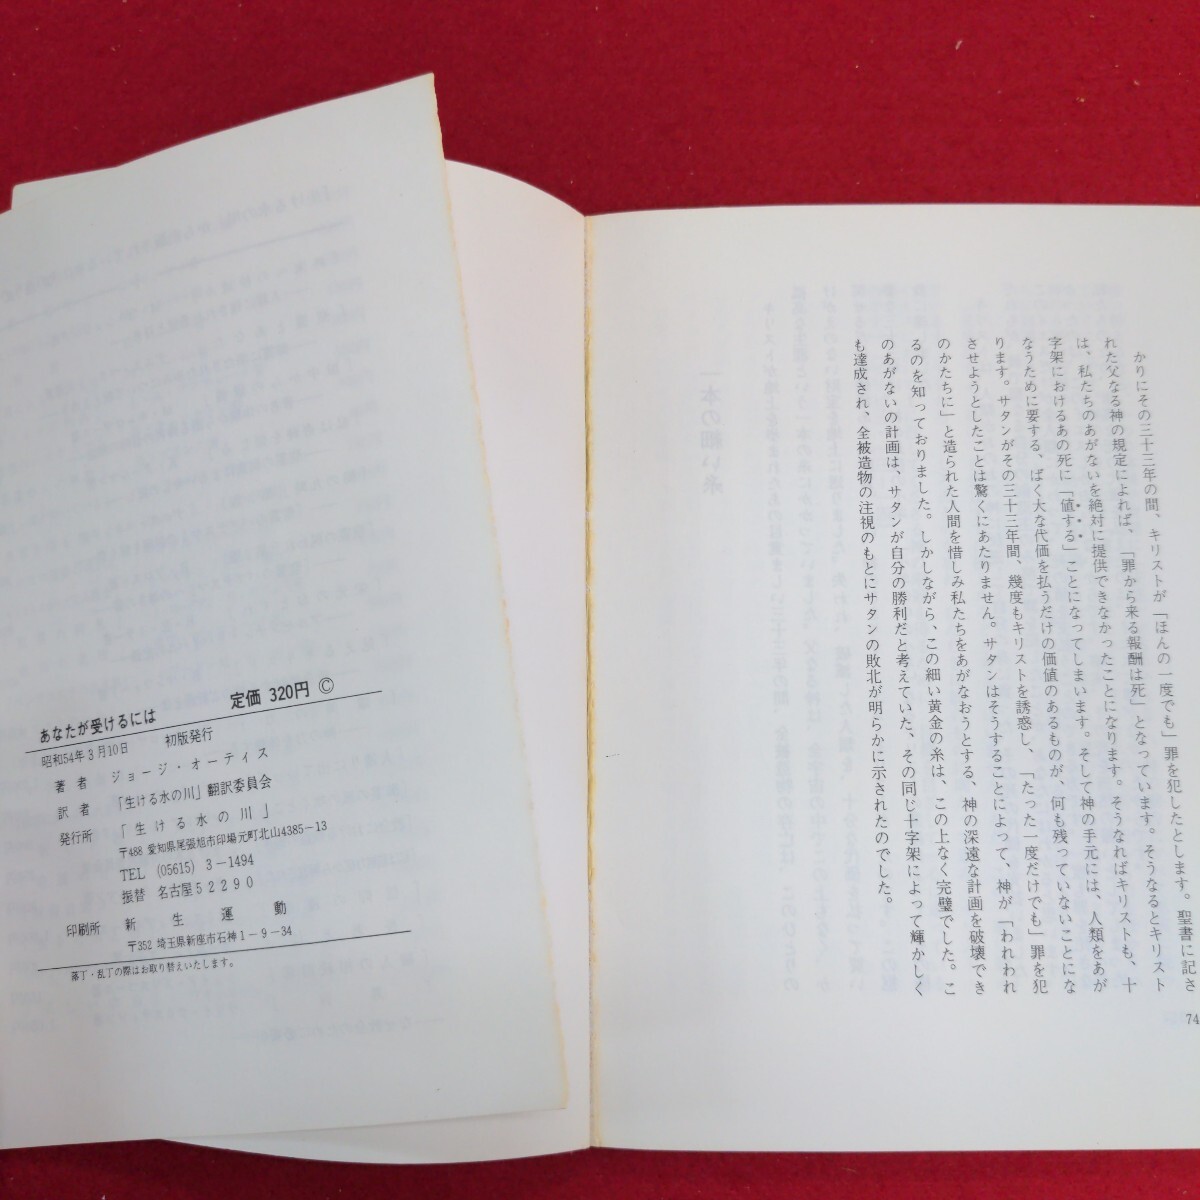 あなたが受けるには　定価 320円 ©
昭和54年3月10日　初版発行
著者　ジョージ・オーティス
訳者　「生ける水の川」翻訳委員会
発行所　「生ける水の川」
〒488 愛知県尾張旭市印場元町北山4385－13
TEL (05615) 3－1494
振替 名古屋52290
印刷所　新生運動
〒352 埼玉県新座市石神1－9－34
落丁・乱丁の際はお取り替えいたします。
かりにその三十三年の間、キリストが「ほんの一度でも」罪を犯したとします。聖書に記さ
れた父なる神の規定によれば、「罪から来る報酬は死」となっています。そうなるとキリスト
は、私たちのあがないを絶対に提供できなかったことになります。そうなればキリストも、十
字架におけるあの死に「値する」ことになってしまいます。そして神の手元には、人類をあが
なうために要する、ばく大な代価を払うだけの価値のあるものが、何も残っていないことにな
ります。サタンがその三十三年間、幾度もキリストを誘惑し、「たった一度だけでも」罪を犯
させようとしたことは驚くにあたりません。サタンはそうすることによって、神が「われわれ
のかたちに」と造られた人間を惜しみ私たちをあがなおうとする、神の深遠な計画を破壊でき
るのを知っておりました。しかしながら、この細い黄金の糸は、この上なく完璧でした。こ
のあがないの計画は、サタンが自分の勝利だと考えていた、その同じ十字架によって輝かしく
も達成され、全被造物の注視のもとにサタンの敗北が明らかに示されたのでした。
74